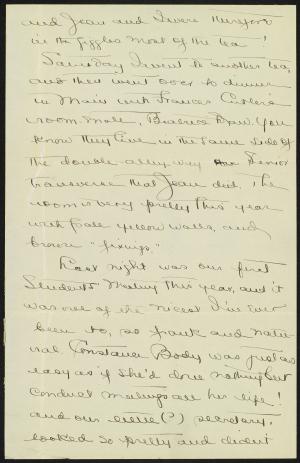 and Jean and I were therefore
in the giggles most of the tea!
Saturday I went to another tea,
and then went over to dinner
in Main with Frances Cutler's
room-mate, Beatrice Daw. You
know they live in the same side of
the double-alley way on Senior
transverse that Jean did. The
room is very pretty this year
with pale yellow walls, and
brown "fixings."
Last night was our first
Students' Meeting this year, and it
was one of the nicest I've ever
been to, so frank and natu-
ral. Constance Body was just as
easy as if she'd done nothing but
conduct meetings all her life!
and our little (?) secretary,
looked so pretty and didn't